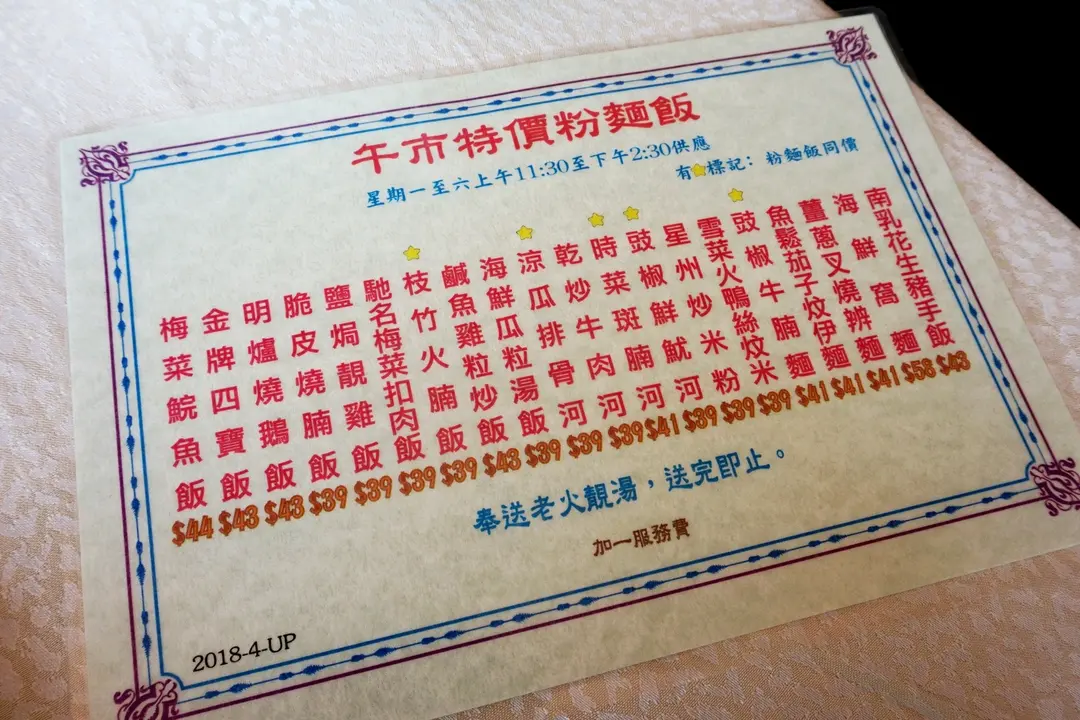 午市特價粉麵飯
星期一至六上午11:30至下午2:30供應
有⭐標記：粉麵飯同價
南乳花生豬手飯 $43
海鮮窩麵 $58
薑蔥叉燒辨麵 $41
魚鬆茄子炆伊麵 $41
豉椒牛腩麵 $41
雪菜火鴨絲炆米 $39
星州炒米粉 $39
豉椒鮮魷河 $39
時菜斑腩河 $41
乾炒牛肉河 $39
涼瓜排骨河 $39
海鮮瓜粒湯飯 $39
鹹魚雞粒炒飯 $43
枝竹火腩飯 $39
馳名梅菜扣肉飯 $39
鹽焗靚雞飯 $39
脆皮燒腩飯 $39
明爐燒鵝飯 $43
金牌四寶飯 $43
梅菜鯇魚飯 $44
奉送老火靚湯，送完即止。
加一服務費
2018-4-UP